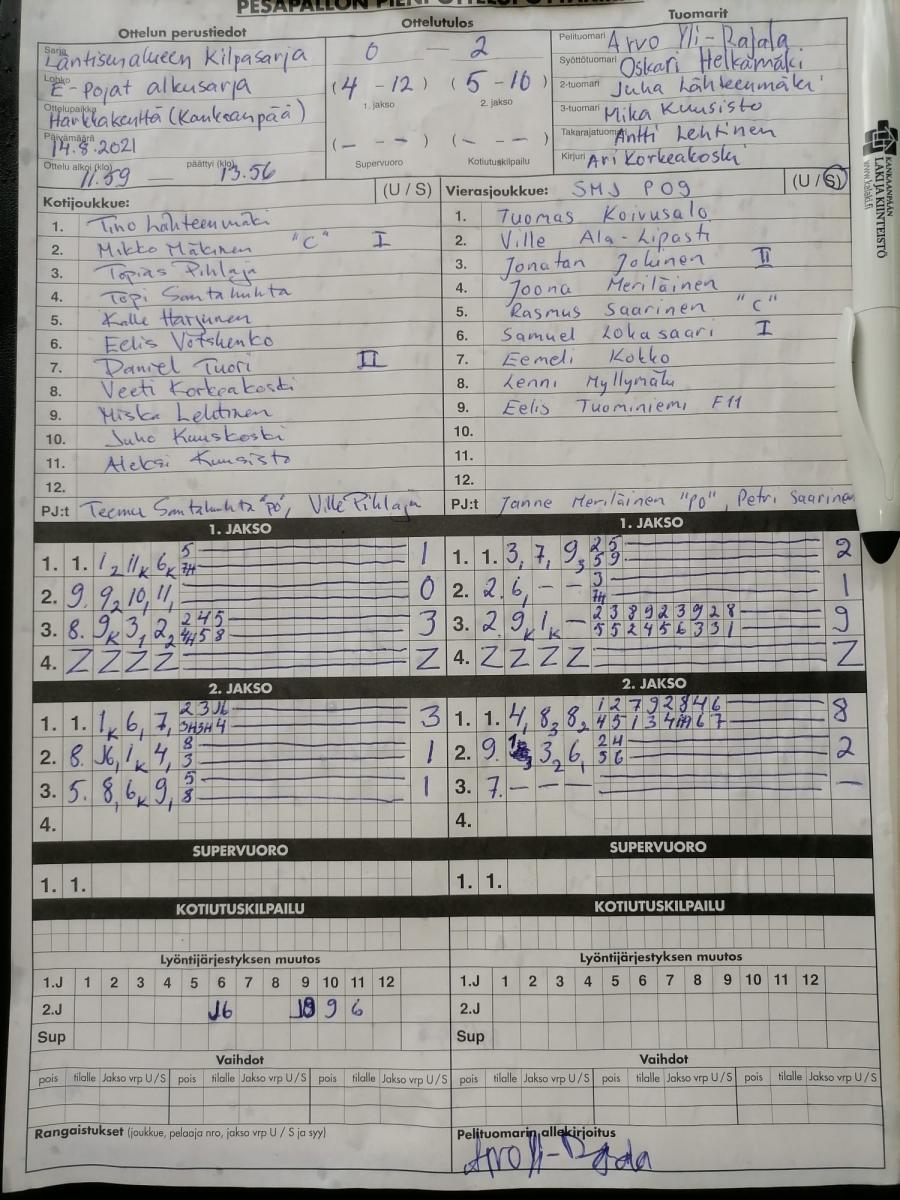 Ottelun perustiedot
Ottelutulos
Tuomarit
Sarja Läntisenalueen Kilpasarja
Lohko E-pojat alkusarja
Ottelupaikka Harkkakenttä (Kankaanpää)
Päivämäärä 14.8.2021
Ottelu alkoi (klo) 11.59 päättyi (klo) 13.56
0 - 2
(4 - 12) (5 - 10)
1. jakso 2. jakso
(- -) (- -)
Supervuoro Kotiutuskilpailu
Pelituomari Arvo Yli-Rajala
Syöttötuomari Oskari Helkamäki
2-tuomari Juha Lähteenmäki
3-tuomari Mika Kuusisto
Takarajatuomari Antti Lehtinen
Kirjuri Ari Korkeakoski
KANKAANPÄÄN
LAKI JA KIINTEISTÖ
Kotijoukkue: (U / S)
1. Tino Lähteenmäki
2. Mikko Mäkinen "C" I
3. Topias Pihlaja
4. Topi Santahuhta
5. Kalle Harjunen
6. Eelis Votshenko
7. Daniel Tuori II
8. Veeti Korkeakoski
9. Miska Lehtinen
10. Juho Kuuskoski
11. Aleksi Kuusisto
12.
PJ:t Teemu Santahuhta "po", Ville Pihlaja
Vierasjoukkue: SMJ P09 (U / S)
1. Tuomas Koivusalo
2. Ville Ala-Lipasti
3. Jonatan Jokinen II
4. Joona Meriläinen
5. Rasmus Saarinen "C"
6. Samuel Lokasaari I
7. Eemeli Kokko
8. Lenni Myllymäki
9. Eelis Tuominiemi F11
10.
11.
12.
PJ:t Janne Meriläinen "PO", Petri Saarinen
1. JAKSO
1. 1. 1, 2 11 K 6 K 5 7H 1
2. 9. 9 2 10, 11, 0
3. 8. 9 K 3, 2 2 2 4 5 4H 5 8 3
4. Z Z Z Z Z
1. JAKSO
1. 1. 3, 7, 9 3 2 5 5 9 2
2. 2. 6, - - 3 7H 1
3. 2. 9 K 1 K - 2 3 8 9 2 3 9 2 8 5 5 2 4 5 6 3 3 1 9
4. Z Z Z Z Z
2. JAKSO
1. 1. 1 K 6, 7, 2 3 J6 3H 3H 4 3
2. 8. J6, 1 K 4, 8 3 1
3. 5. 8, 6 K 9, 5 8 1
4.
2. JAKSO
1. 1. 4, 8 3 8 2 1 2 7 9 2 8 4 6 8
2. 9. 3 2 6, 2 4 5 6 2
3. 7. - - - -
4.
SUPERVUORO
1. 1.
SUPERVUORO
1. 1.
KOTIUTUSKILPAILU
KOTIUTUSKILPAILU
Lyöntijärjestyksen muutos
1.J 1 2 3 4 5 6 7 8 9 10 11 12
2.J J6 9 6
Sup
Lyöntijärjestyksen muutos
1.J 1 2 3 4 5 6 7 8 9 10 11 12
2.J
Sup
Vaihdot
pois tilalle Jakso vrp U / S pois tilalle Jakso vrp U / S pois tilalle Jakso vrp U / S
Vaihdot
pois tilalle Jakso vrp U / S pois tilalle Jakso vrp U / S pois tilalle Jakso vrp U / S
Rangaistukset (joukkue, pelaaja nro, jakso vrp U / S ja syy)
Pelituomarin allekirjoitus